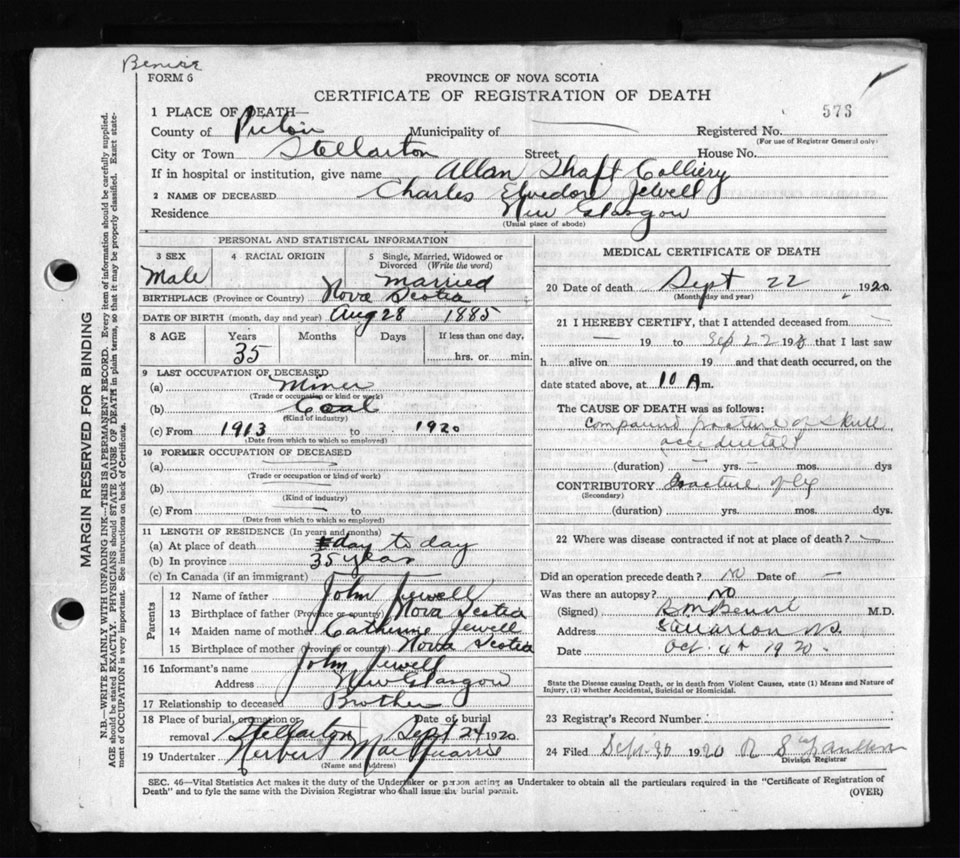 FORM 6
PROVINCE OF NOVA SCOTIA
CERTIFICATE OF REGISTRATION OF DEATH
573
1 PLACE OF DEATH—
County of Pictou Municipality of Registered No.
(For use of Registrar General only)
City or Town Stellarton Street House No.
If in hospital or institution, give name Allan Shaft Colliery
2 NAME OF DECEASED Charles Jewell
Residence New Glasgow
(Usual place of abode)
MARGIN RESERVED FOR BINDING
N.B.—WRITE PLAINLY WITH UNFADING INK—THIS IS A PERMANENT RECORD. Every item of information should be carefully supplied.
AGE should be stated EXACTLY. PHYSICIANS should STATE CAUSE OF DEATH in plain terms, so that it may be properly classified. Exact state-
ment of OCCUPATION is very important. See instructions on back of Certificate.
PERSONAL AND STATISTICAL INFORMATION
3 SEX
Male
4 RACIAL ORIGIN
5 Single, Married, Widowed or
Divorced (Write the word)
married
BIRTHPLACE (Province or Country) Nova Scotia
DATE OF BIRTH (month, day and year) Aug 28 1885
8 AGE Years Months Days If less than one day,
35 hrs. or min.
9 LAST OCCUPATION OF DECEASED
(a) Miner
(Trade or occupation or kind or work)
(b) Coal
(Kind of industry)
(c) From 1913 to 1920
(Date from which to which so employed)
10 FORMER OCCUPATION OF DECEASED
(a)
(Trade or occupation or kind of work)
(b)
(Kind of industry)
(c) From to
(Date from which to which so employed)
11 LENGTH OF RESIDENCE (In years and months)
(a) At place of death day to day
(b) In province 35 years
(c) In Canada (if an immigrant)
Parents
12 Name of father John Jewell
13 Birthplace of father (Province or country) Nova Scotia
14 Maiden name of mother Catherine Jewell
15 Birthplace of mother (Province or country) Nova Scotia
16 Informant's name John Jewell
Address New Glasgow
17 Relationship to deceased Brother
18 Place of burial, cremation or Date of burial
removal Stellarton Sept 24 1920
19 Undertaker Herbert
(Name and address)
MEDICAL CERTIFICATE OF DEATH
20 Date of death Sept 22 1920
(Month, day and year)
21 I HEREBY CERTIFY, that I attended deceased from
19 to Sep 22 19 that I last saw
h alive on 19 and that death occurred, on the
date stated above, at 10 A m.
The CAUSE OF DEATH was as follows:
Compound fracture of skull
accidental
(duration) yrs. mos. dys
CONTRIBUTORY Fracture of leg
(Secondary)
(duration) yrs. mos. dys.
22 Where was disease contracted if not at place of death?
Did an operation precede death? no Date of
Was there an autopsy? no
(Signed) M.D.
Address
Date Oct. 4th 1920.
State the Disease causing Death, or in death from Violent Causes, state (1) Means and Nature of
Injury, (2) whether Accidental, Suicidal or Homicidal.
23 Registrar's Record Number
24 Filed Sept. 30 1920
Division Registrar
SEC. 46—Vital Statistics Act makes it the duty of the Undertaker or person acting as Undertaker to obtain all the particulars required in the "Certificate of Registration of
Death" and to fyle the same with the Division Registrar who shall issue the burial permit.
(OVER)